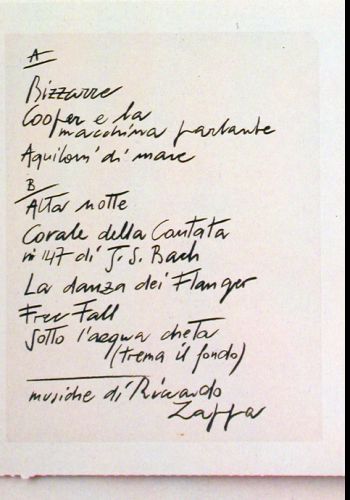 A
Bizzarre
Cooper e la
macchina parlante
Aquiloni di mare
B
Alta notte
Corale della Cantata
n° 147 di J. S. Bach
La danza dei Flanger
Free Fall
Sotto l'acqua cheta
(trema il fondo)
musiche di Riccardo
Zappa